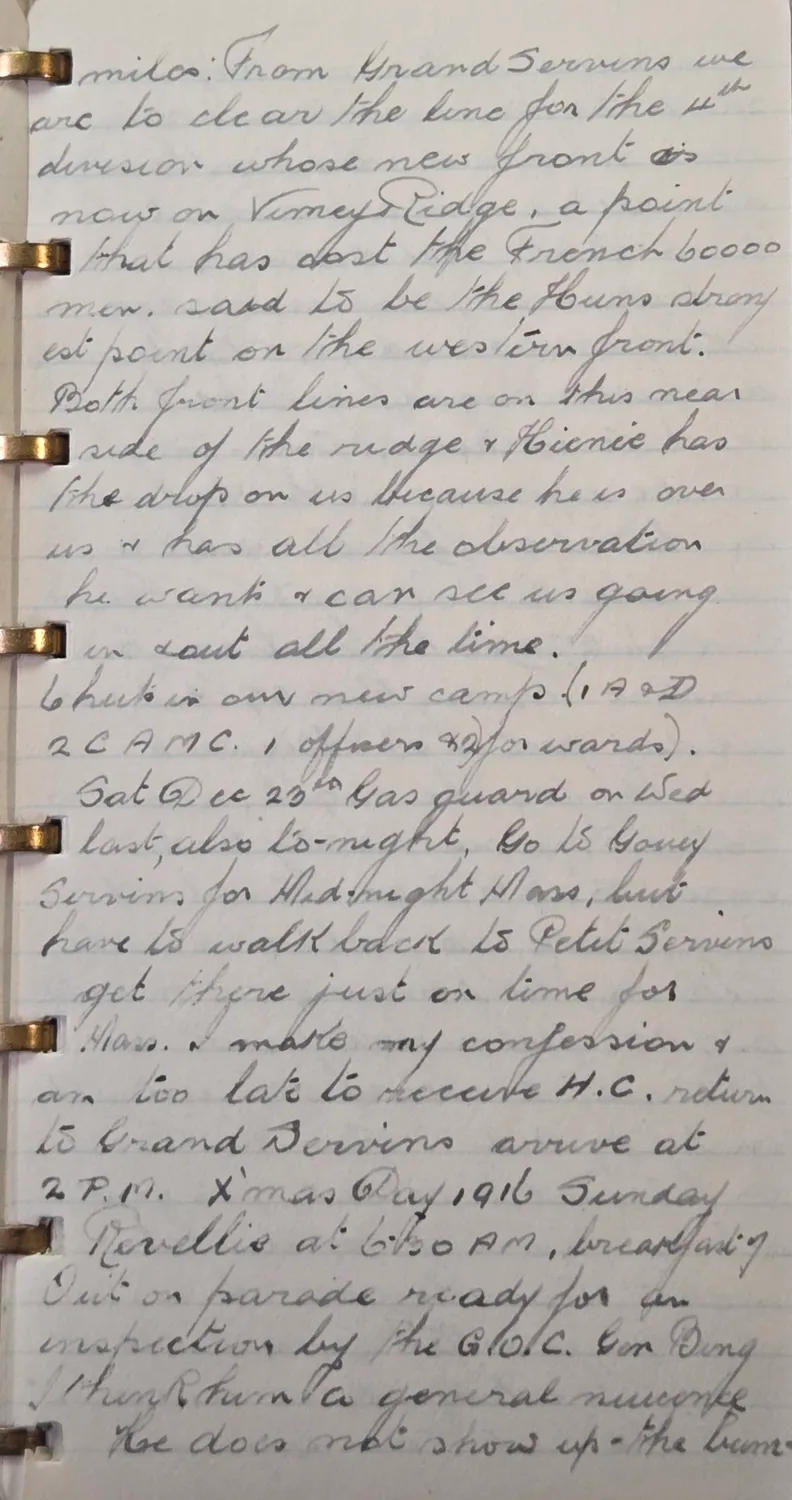 miles: From Grand Servins we
are to clear the line for the 4th
division whose new front is
now on Vimey Ridge, a point
that has cost the French 60000
men. said to be the Huns strong
est point on the western front.
Both front lines are on this near
side of the ridge & Hienie has
the drop on us because he is over
us & has all the observation
he wants & can see us going
in & out all the time.
6 huts in our new camp (1 A & D
2 C A M C. 1 officers & 2 for wards).
Sat Dec 23rd Gas guard on Wed
last, also to-night, Go to Gouey
Servins for Mid-night Mass, but
have to walk back to Petit Servins
get there just on time for
Mass. & make my confession &
am too late to receive H.C. return
to Grand Servins arrive at
2 P.M. X'mas Day 1916 Sunday
Revellie at 6:30 AM, breakfast 7
Out on parade ready for an
inspection by the G.O.C. Gen Bing
I think him a general nuisance
He does not show up - the bum-